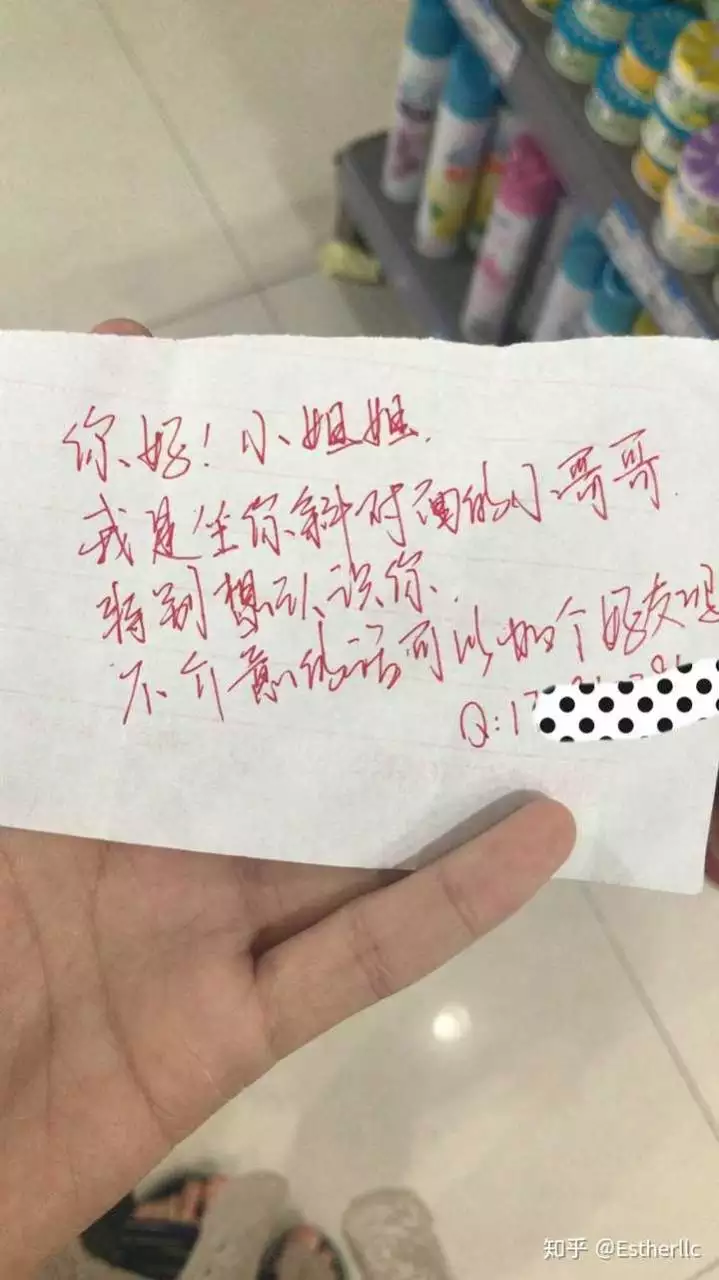 你好！小姐姐.
我是坐你斜对面的小哥哥.
特别想认识你.
不介意的话可以加个好友吧
Q:17
知乎 @Estherllc